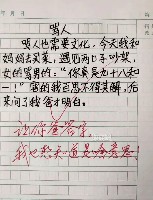 年 月 日
骂人
骂人也需要文化，今天我和
妈妈去买菜，遇见两口子吵架，
女的骂男的："你真是九十八和
一！"害的我百思不得其解，后
来问了我爸才明白。
让你爸签字
我也想知道是啥意思！